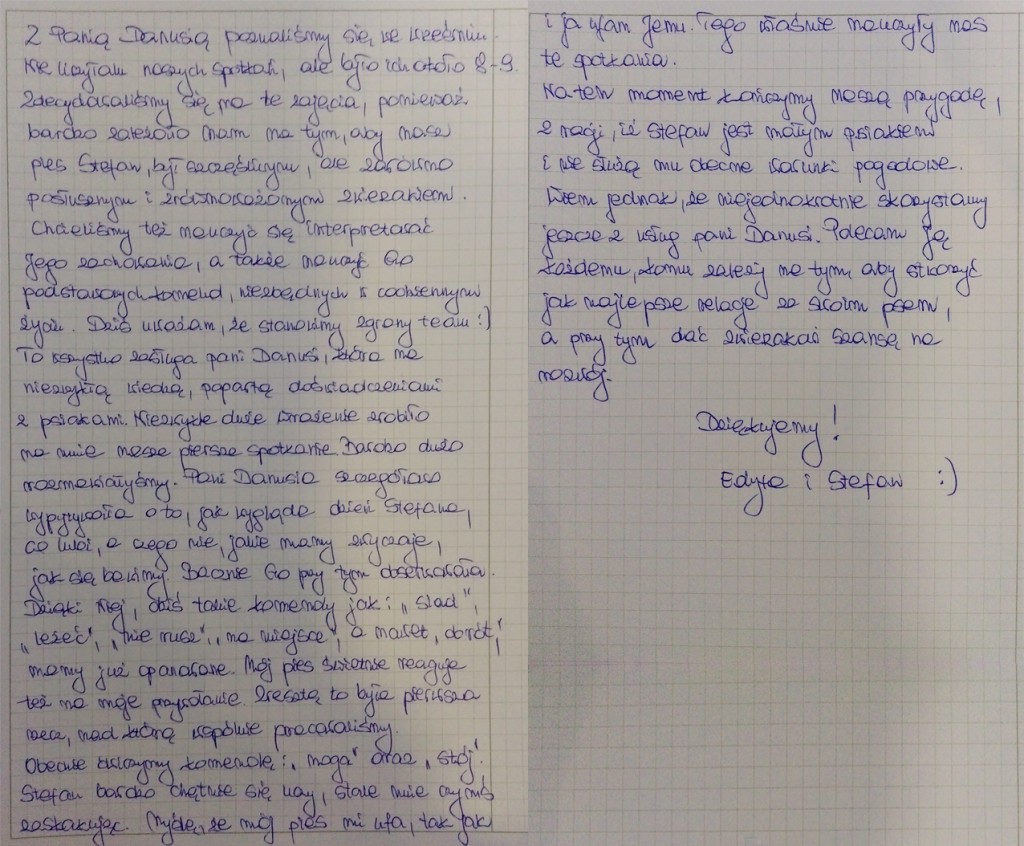 Z Panią Danusią poznaliśmy się we wrześniu.
Nie liczyłam naszych spotkań, ale było ich około 8-9.
Zdecydowaliśmy się na te zajęcia, ponieważ
bardzo zależało nam na tym, aby nasz
pies Stefan, był szczęśliwym, ale zarówno
posłusznym i zrównoważonym zwierzakiem.
Chcieliśmy też nauczyć się interpretować
jego zachowania, a także nauczyć Go
podstawowych komend, niezbędnych w codziennym
życiu. Dziś uważam, że stanowimy zgrany team :)
To wszystko zasługa pani Danusi, która ma
niezwykłą wiedzę, popartą doświadczeniami
z psiakami. Niezwykle duże wrażenie zrobiło
na mnie nasze pierwsze spotkanie. Bardzo dużo
rozmawialiśmy. Pani Danusia szczegółowo
wypytywała o to, jak wygląda dzień Stefana,
co lubi, a czego nie, jakie mamy zwyczaje,
jak się bawimy. Bacznie Go przy tym obserwowała.
Dzięki Niej, dziś takie komendy jak: „siad",
„leżeć", „nie rusz", „na miejsce", a nawet „obrót",
mamy już opanowane. Mój pies świetnie reaguje
też na moje przywołanie. Zresztą to była pierwsza
rzecz, nad którą wspólnie pracowaliśmy.
Obecnie ćwiczymy komendę: „noga" oraz „stój".
Stefan bardzo chętnie się uczy, stale mnie czymś
zaskakując. Myślę, że mój pies mi ufa, tak jak
i ja ufam Jemu. Tego właśnie nauczyły nas
te spotkania.
Na ten moment kończymy naszą przygodę,
z racji, iż Stefan jest małym psiakiem
i nie służą mu obecne warunki pogodowe.
Wiem jednak, że niejednokrotnie skorzystamy
jeszcze z usług pani Danusi. Polecam ją
każdemu, komu zależy na tym, aby stworzyć
jak najlepsze relacje ze swoim psem,
a przy tym dać zwierzakowi szansę na
rozwój.
Dziękujemy!
Edyta i Stefan :)